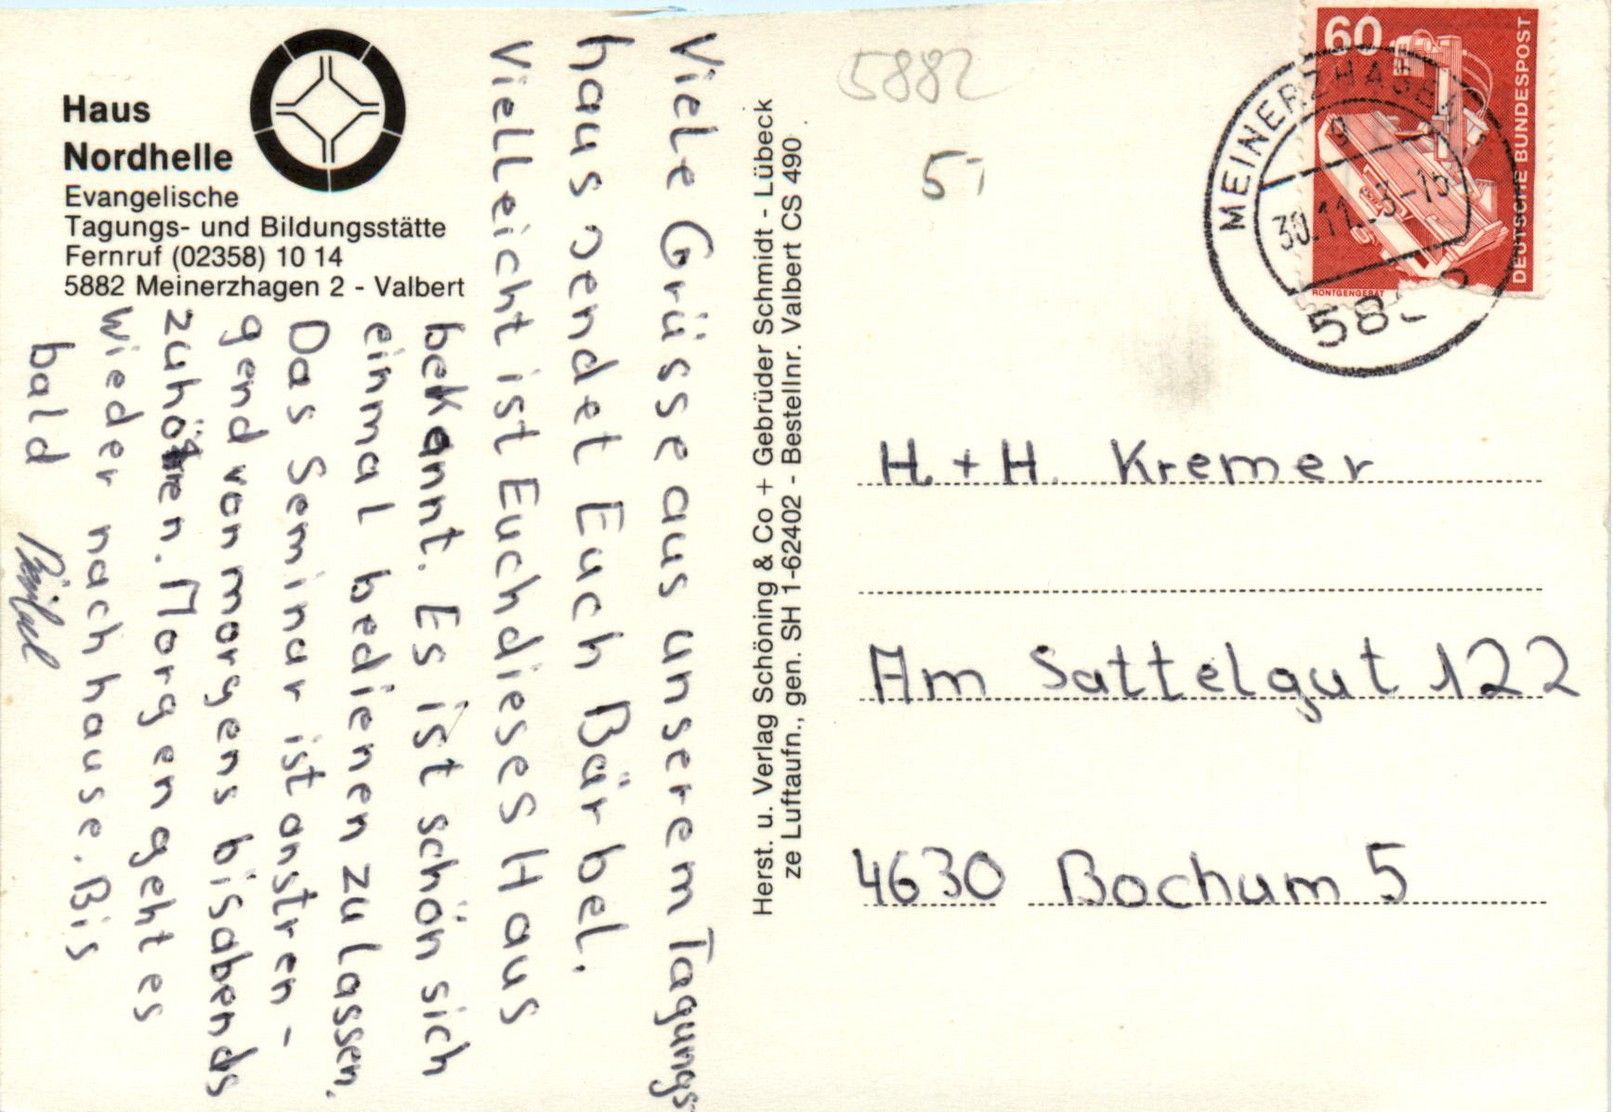 Haus
Nordhelle
Evangelische
Tagungs- und Bildungsstätte
Fernruf (02358) 10 14
5882 Meinerzhagen 2 - Valbert
Viele Grüsse aus unserem Tagungs-
haus sendet Euch Bärbel.
Vielleicht ist Euch dieses Haus
bekannt. Es ist schön sich
einmal bedienen zu lassen.
Das Seminar ist anstren-
gend von morgens bis abends
zuhören. Morgen geht es
wieder nach hause. Bis
bald
Herst. u. Verlag Schöning & Co + Gebrüder Schmidt - Lübeck
ze Luftaufn., gen. SH 1-62402 - Bestellnr. Valbert CS 490
5882
5,-
60
DEUTSCHE BUNDESPOST
RÖNTGENGERÄT
MEINERZHAGEN
g
30.11. 3-15
58
H. + H. Kremer
Am Sattelgut 122
4630 Bochum 5